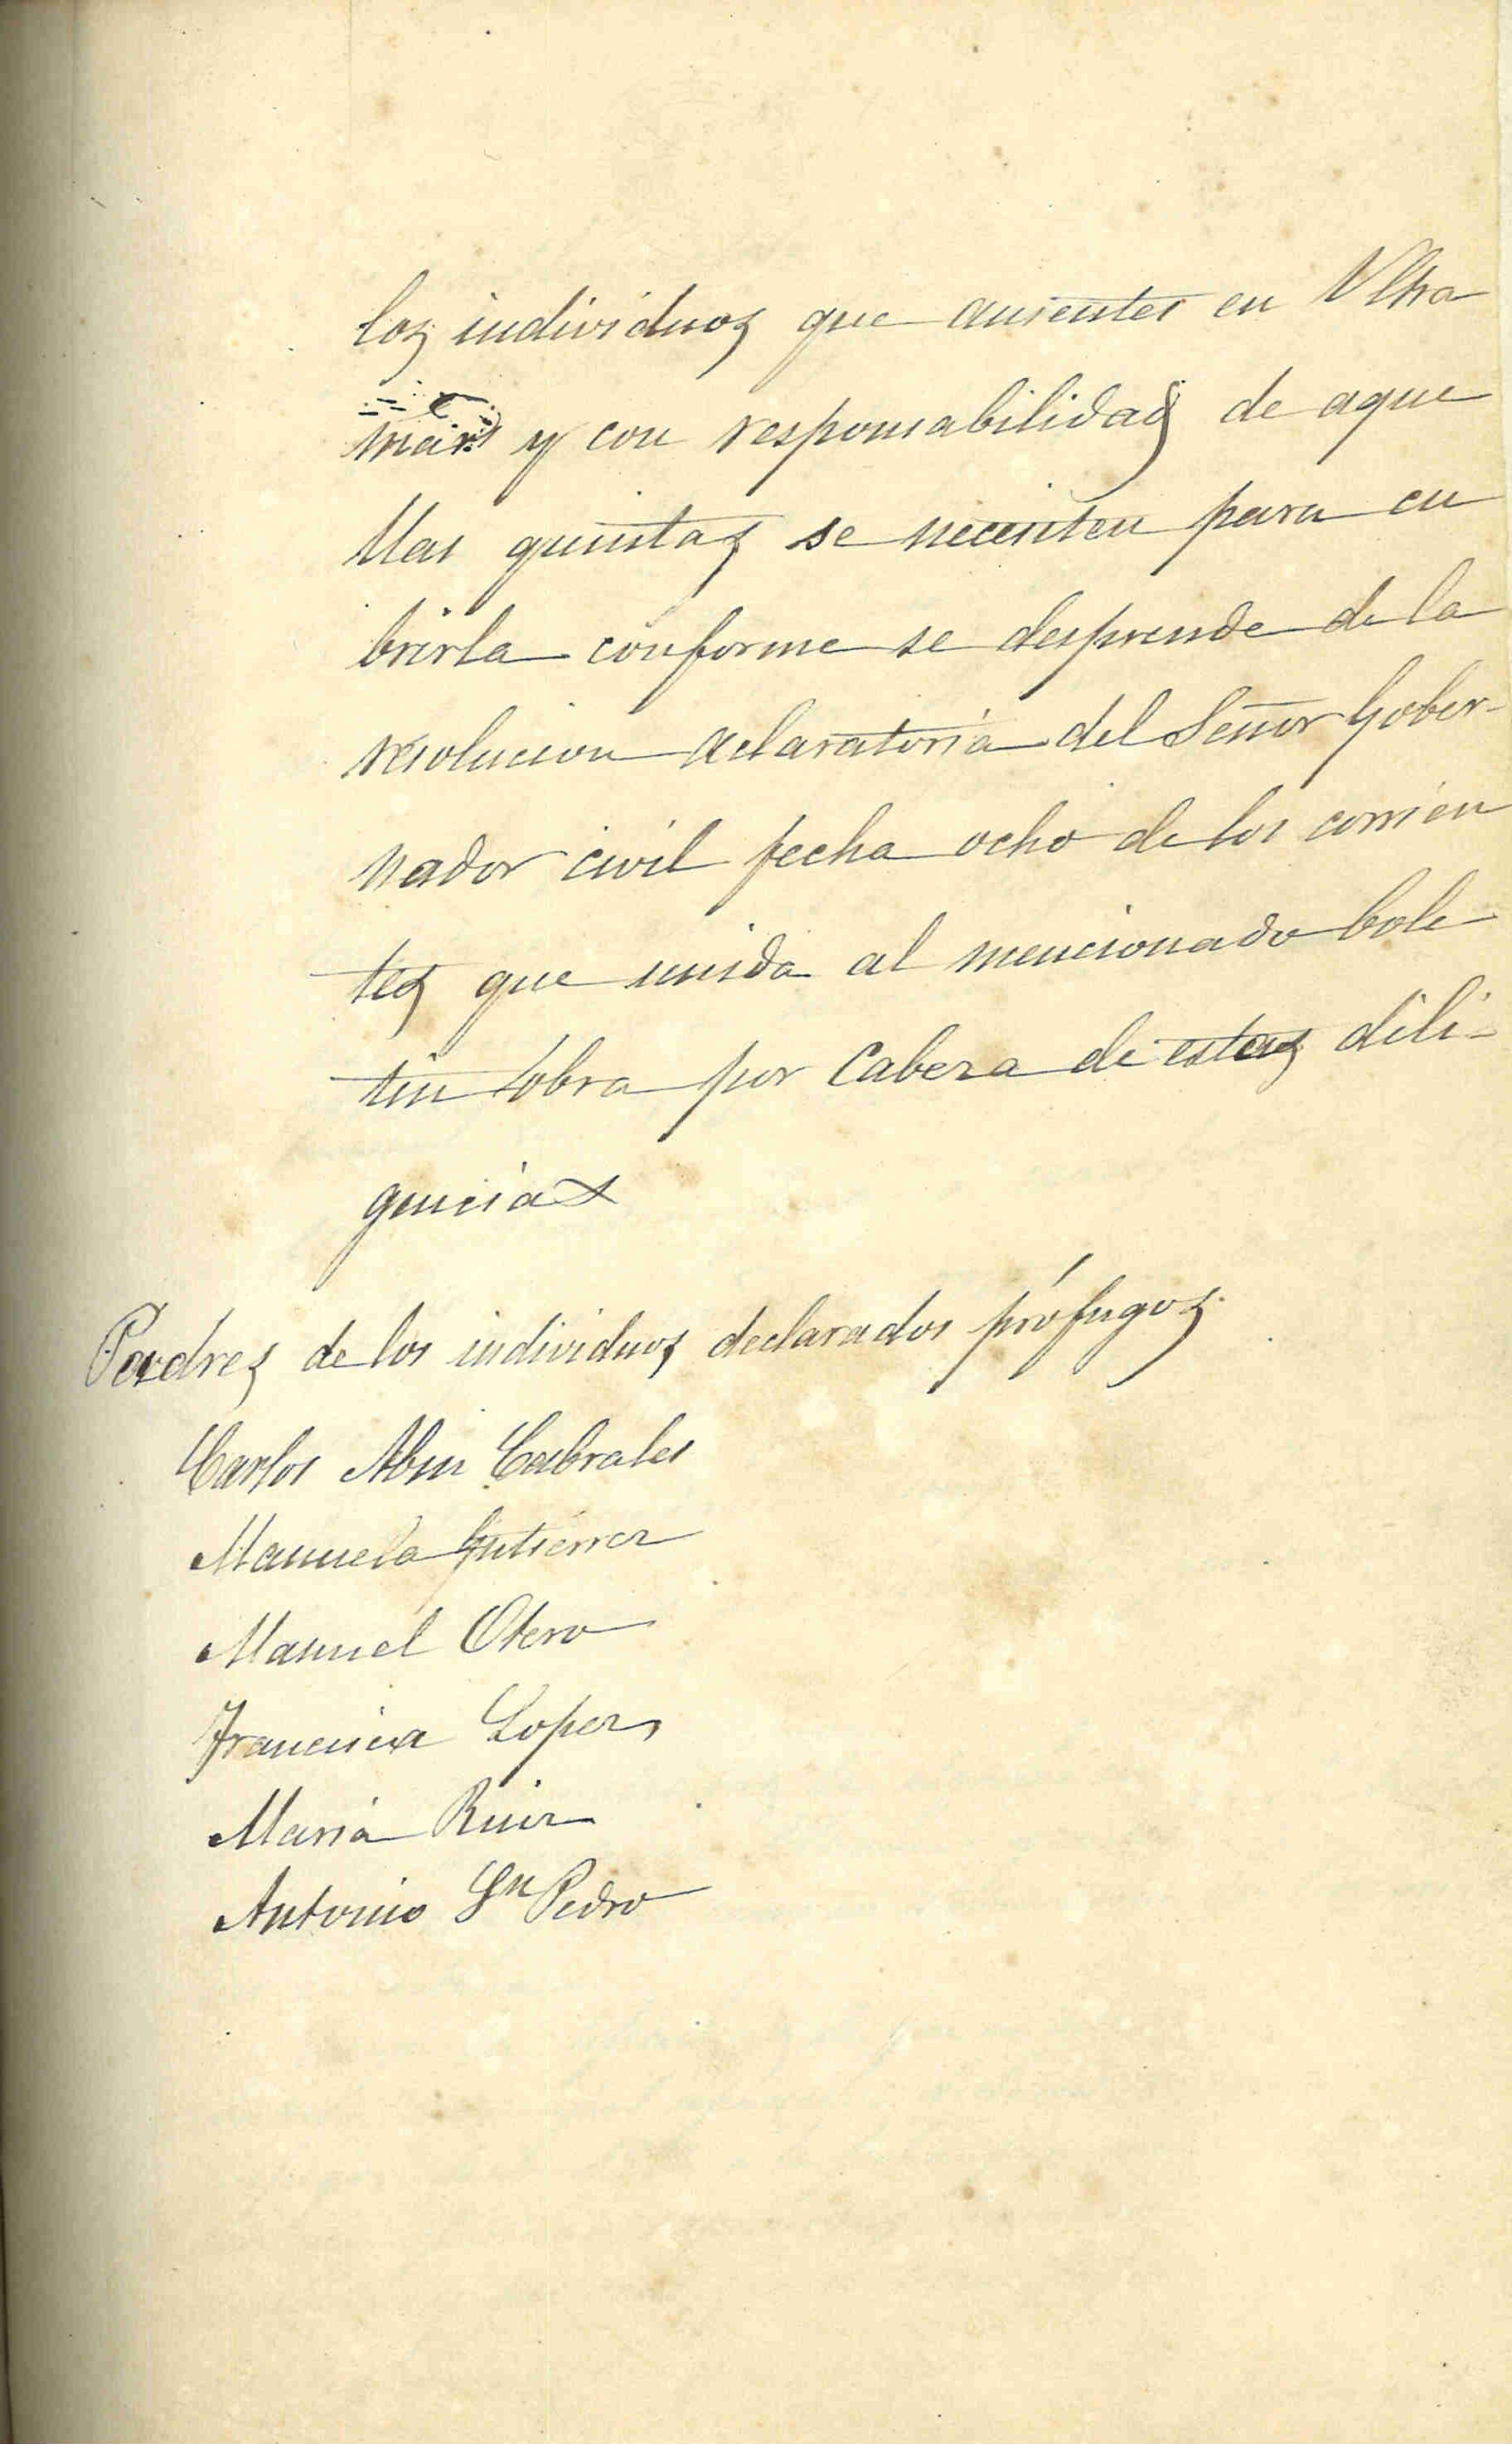 los individuos que ausentes en Ultra
mar y con responsabilidad de aque
llas quintas se necesiten para cu
brirla conforme se desprende de la
resolucion aclaratoria del Señor Gober-
nador civil fecha ocho de los corrien
tes que unida al mencionado bole
tin obra por cabeza de estas dili-
gencias
Padres de los individuos declarados prófugos.
Carlos Abin Cabrales
Manuela Gutierrez
Manuel Otero
Francisca Lopez,
Maria Ruiz
Antonio Sn Pedro